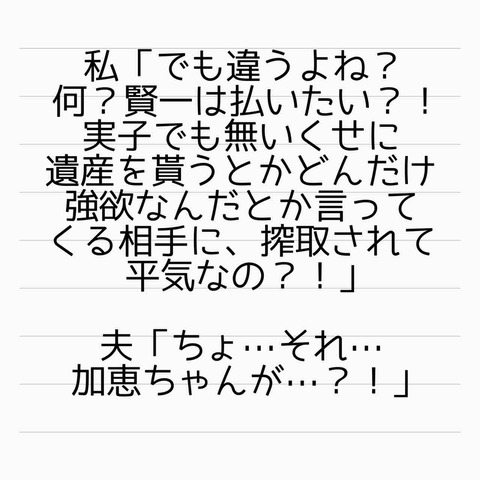 私「でも違うよね？
何？賢一は払いたい？！
実子でも無いくせに
遺産を貰うとかどんだけ
強欲なんだとか言って
くる相手に、搾取されて
平気なの？！」
夫「ちょ…それ…
加恵ちゃんが…？！」